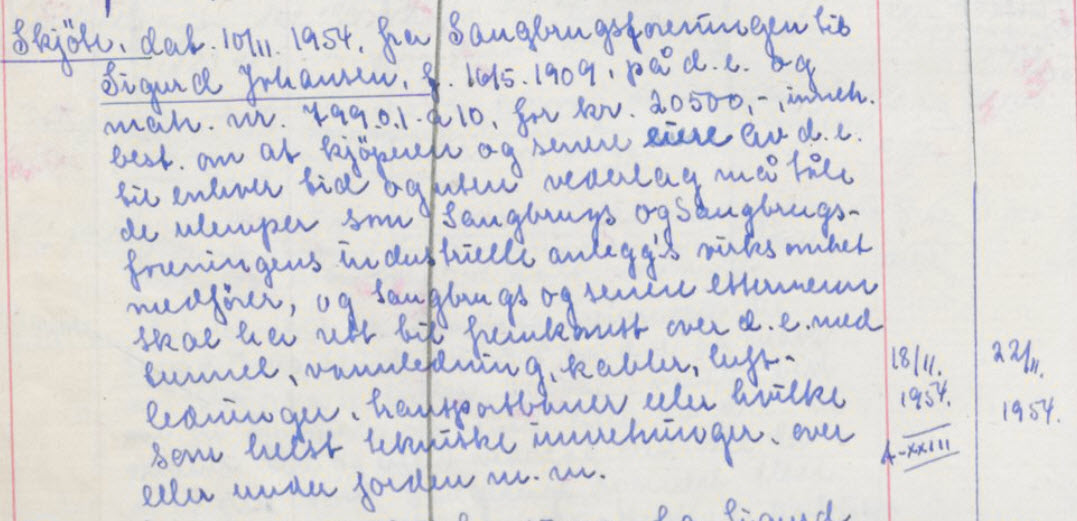 Skjöte, dat. 10/11. 1954, fra Saugbrugsforeningen til
Sigurd Johansen, f. 10/5. 1909, på d. e. og
matr. nr. 799.0.1. a 10, for kr. 20500,-, inneh.
best. om at kjöperen og senere eiere av d. e.
til enhver tid og uten vederlag må tåle
de ulemper som Saugbrugs og Saugbrugs-
foreningens industrielle anlegg's virksomhet
medförer, og Saugbrugs og senere ettermenn
skal ha rett til fremkomst over d. e. med
tunnel, vannledning, kabler, luft-
ledninger, transportbaner eller hvilke
som helst tekniske innretninger, over
eller under jorden m. m.
18/11. 22/11.
1954. 1954.
A-XXIII
Sigurd